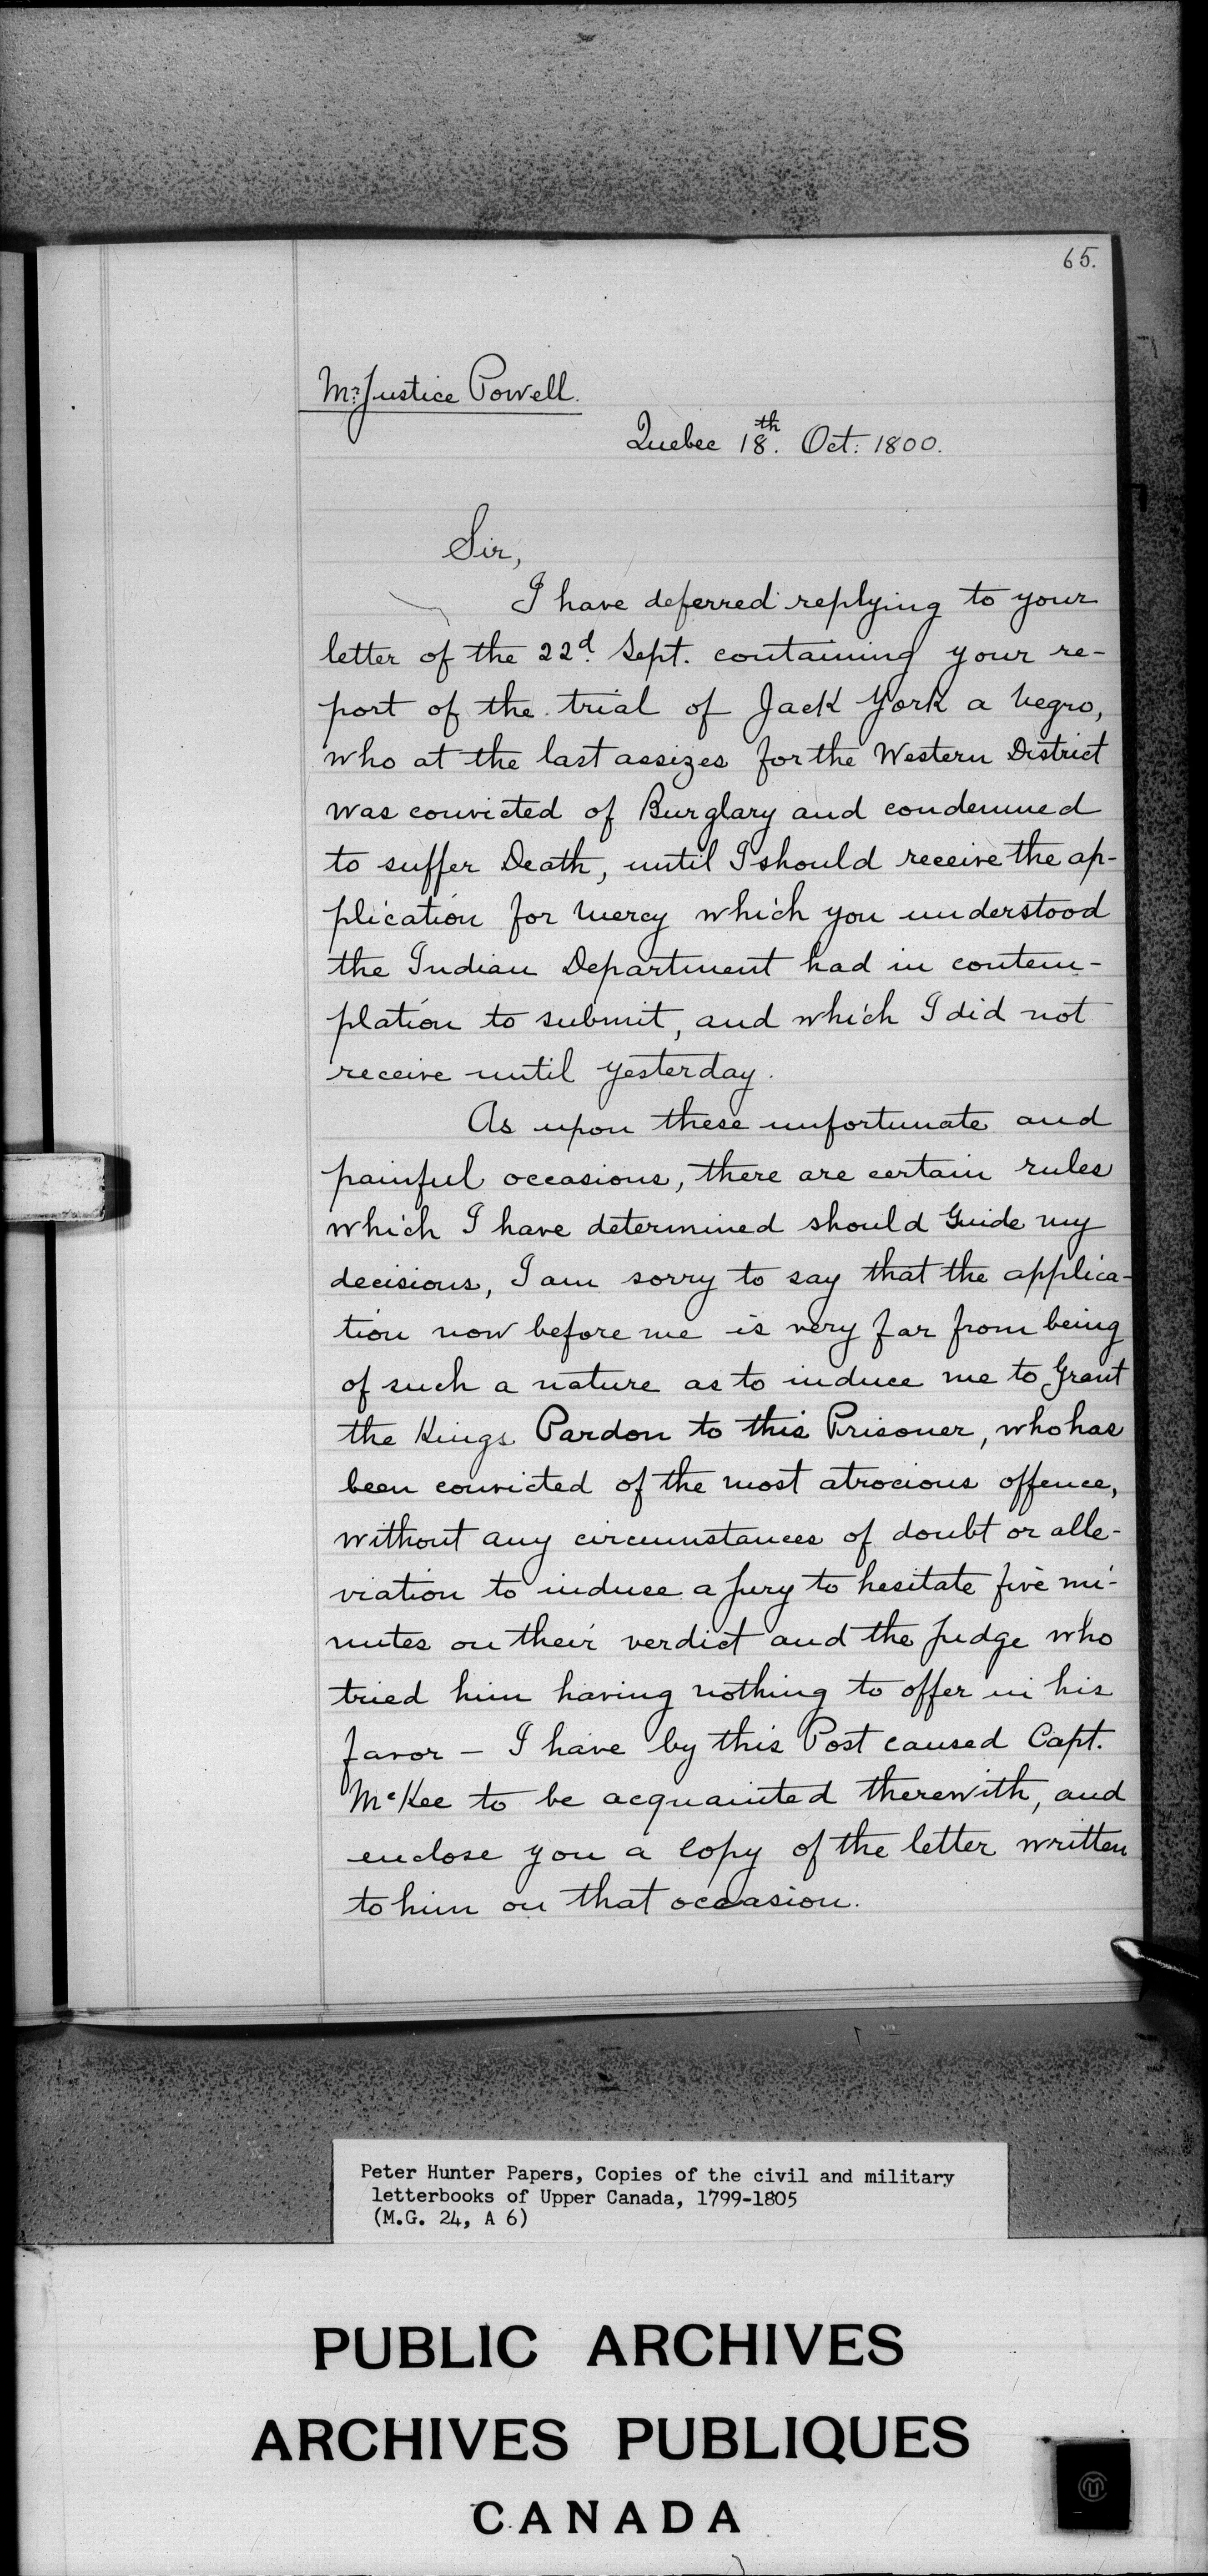 65.
Mr. Justice Powell.
Quebec 18th. Oct: 1800.
Sir,
I have deferred replying to your
letter of the 22d. Sept. containing your re-
port of the trial of Jack York a Negro,
who at the last assizes for the Western District
was convicted of Burglary and condemned
to suffer Death, until I should receive the ap-
plication for Mercy which you understood
the Indian Department had in contem-
plation to submit, and which I did not
receive until yesterday.
As upon these unfortunate and
painful occasions, there are certain rules
which I have determined should Guide my
decisions, I am sorry to say that the applica-
tion now before me is very far from being
of such a nature as to induce me to Grant
the Kings Pardon to this Prisoner, who has
been convicted of the most atrocious offence,
without any circumstances of doubt or alle-
viation to induce a Jury to hesitate five mi-
nutes on their verdict and the Judge who
tried him having nothing to offer in his
favor – I have by this Post caused Capt.
McKee to be acquainted therewith, and
enclose you a Copy of the letter written
to him on that occasion.
Peter Hunter Papers, Copies of the civil and military
letterbooks of Upper Canada, 1799-1805
(M.G. 24, A 6)
PUBLIC ARCHIVES
ARCHIVES PUBLIQUES
CANADA